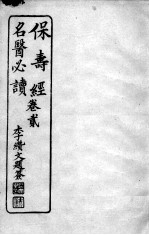 保壽經卷貳
名醫必讀
李續文題簽